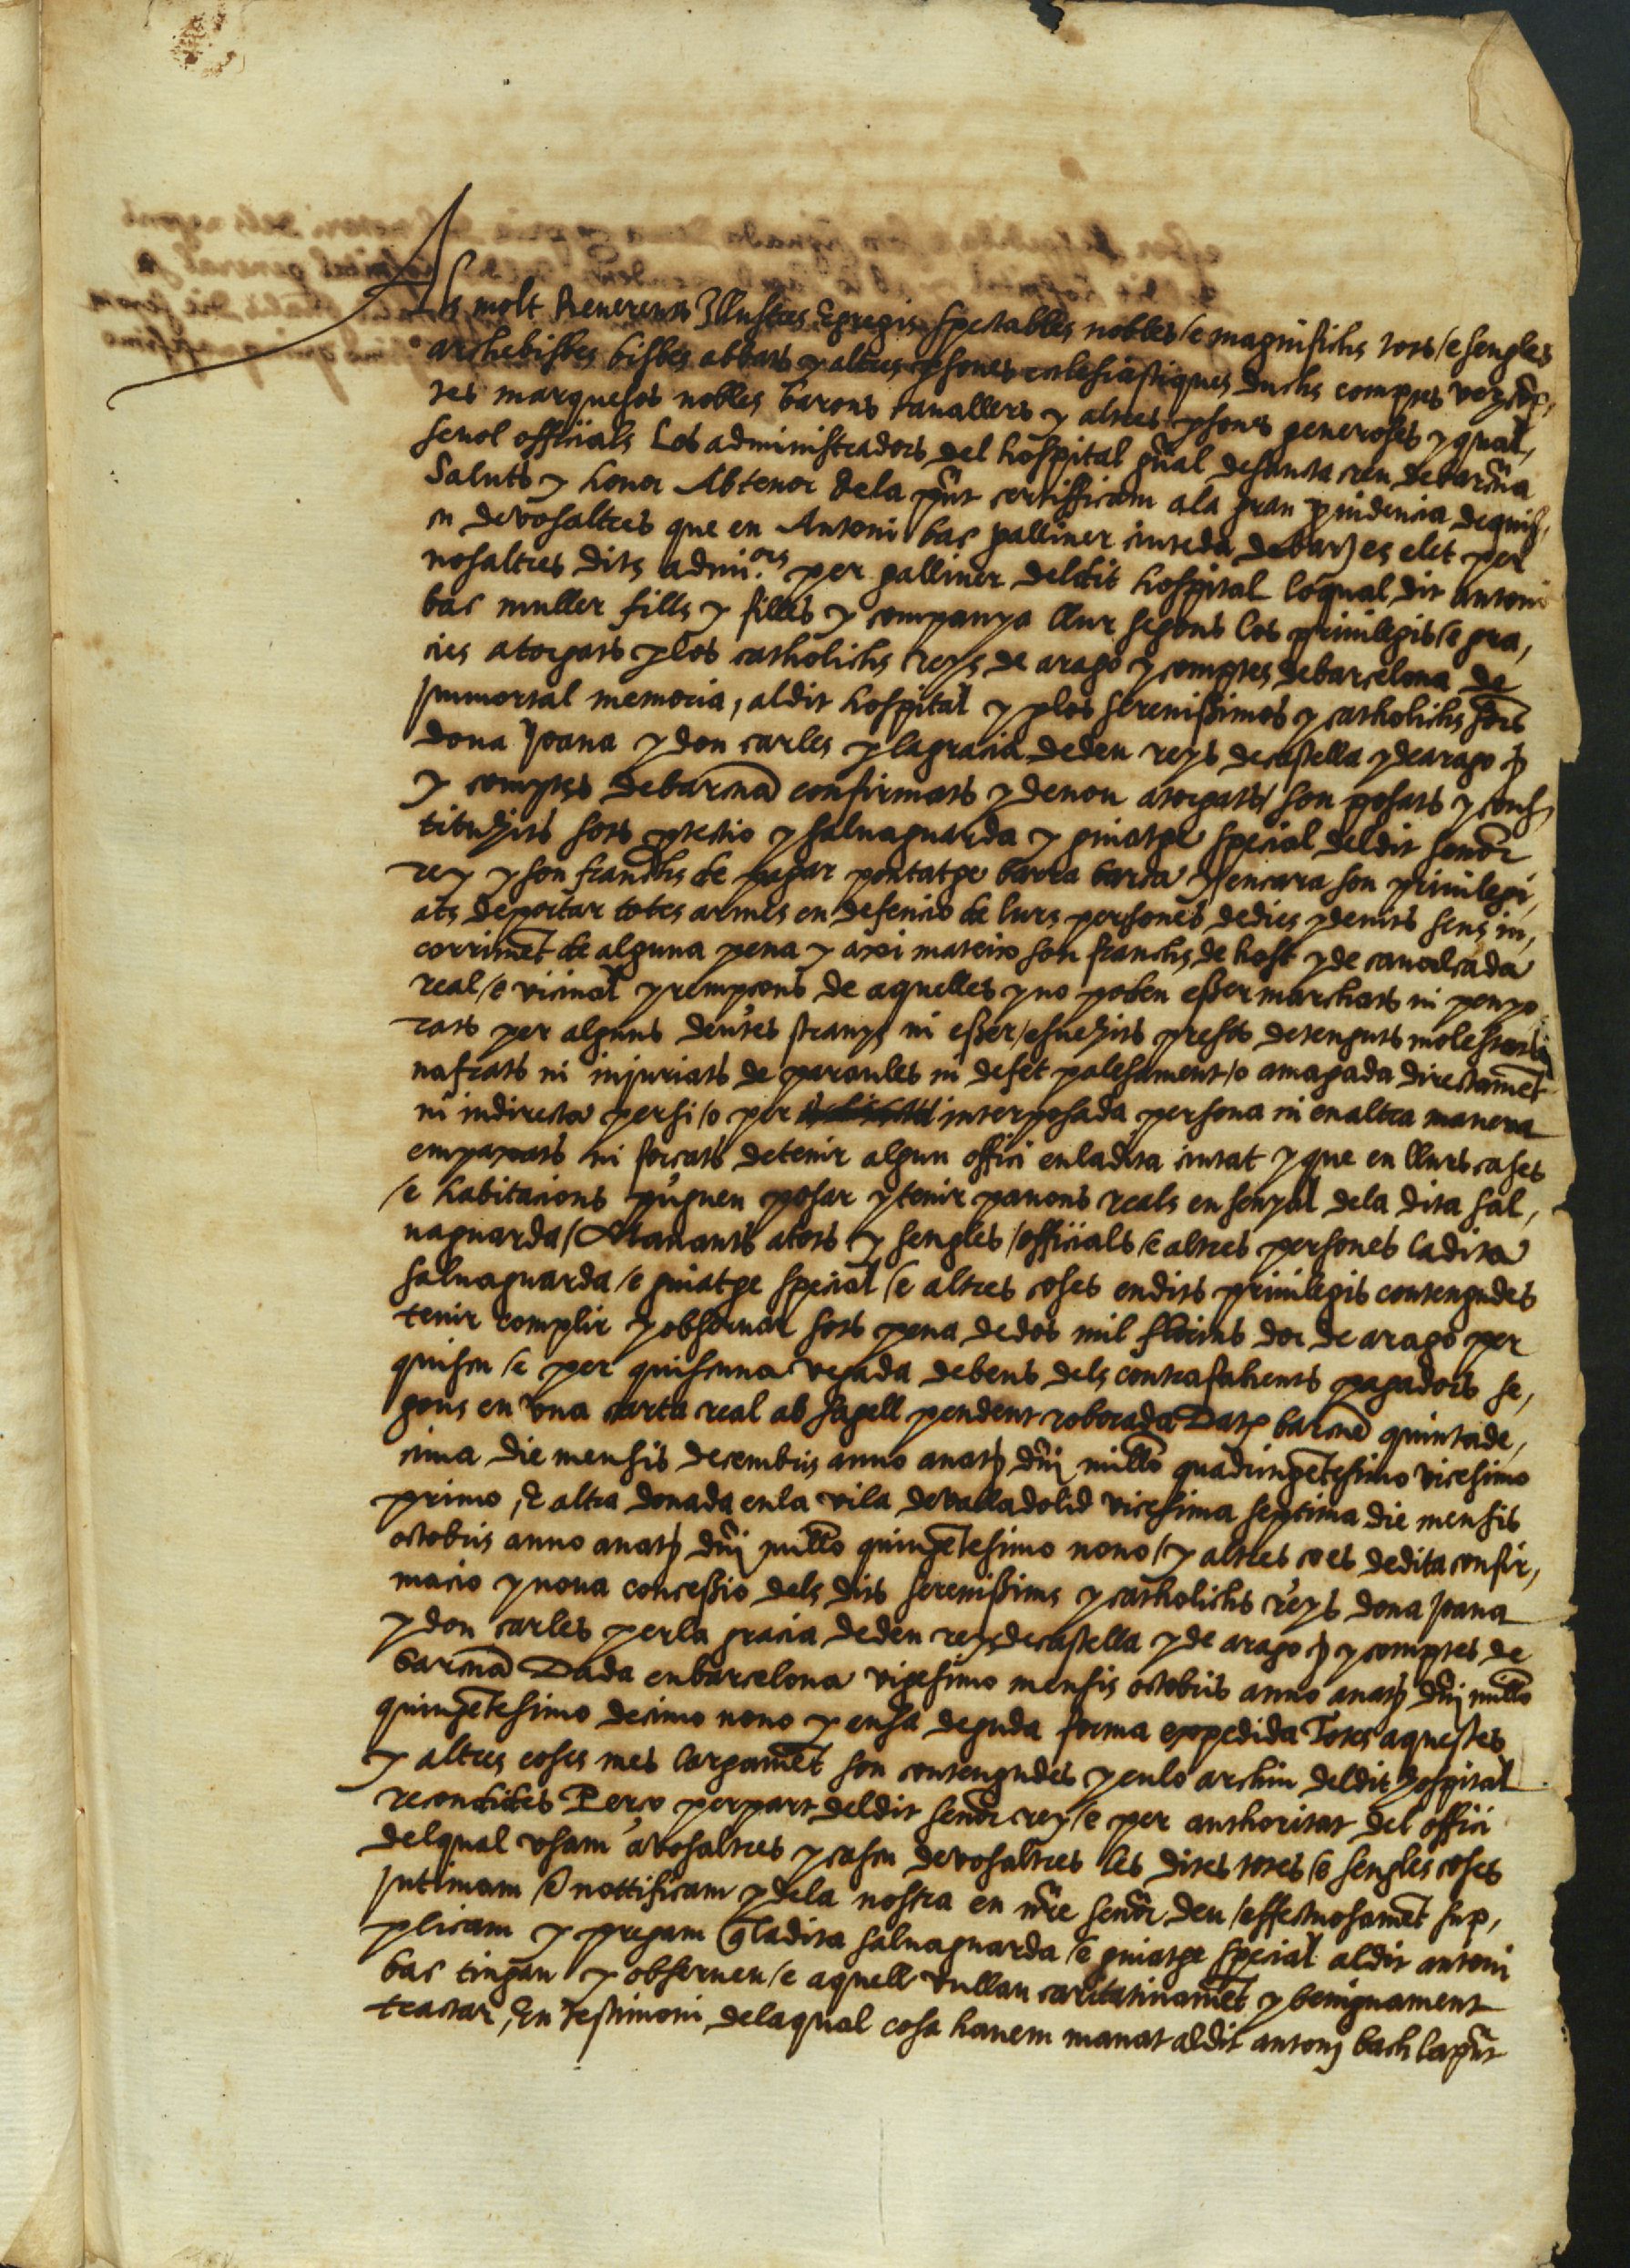 Als molt Reverents Illustres Egregis spectables nobles /e magnifichs tots /e sengles
archebisbes bisbes abbats y altres psones eclesiastiques duchs comptes vezcõp,
tes marquesos nobles barons cavallers y altres psones generoses y qual,
sevol officials Los administradors del hospital gñal desancta creu debarc̃na
Saluts y honor Abtenor dela pñt certifficam ala gran prudencia dequis,
cu devosaltres que en Antoni bac galliner ciuteda debarj es elet per
nosaltres dits admi.ors per galliner deldit hospital loqual dit antoni
bac muller fills y filles y companya llur segons los privilegis /e gra,
cies atorgats plos catholichs reys de arago y comptes debarcelona de
Immortal memoria, aldit hospital y plos serenissimos y catholichs sõrs
dona Joana y don carles p lagracia dedeu reys decastella ydearago
y comptes debarcna confirmats ydenou atorgats / son posats y cons
tituhits sots ptectio y salvaguarda y guiatge special deldit señor
rey y son franchs de pagar pontatge barra barca y encara son privilegi,
ats deportar totes armes en defencio de lurs persones dedies ydenits sens in,
corrimẽt de alguna pena y axi mateix son franchs de host yde cavalcada
real /e vicinal yrempçons de aquelles yno poden esser marchats ni penyo
rats per alguns deutes stranys ni esser /esvehits presos detenguts molestats
nafrats ni injuriats de paraules ni defet palesament /o amagada directamẽt
ni indirecta persi /o per interposada persona ni enaltra manera
empaxats ni forcats detenir algun offici enladita ciutat y que en llurs cases
/e habitacions puguen posar ytenir panons reals en senyal dela dita sal,
vaguarda / Manants atots y sengles /officials /e altres persones ladita
salvaguarda /e guiatge special /e altres coses endits privilegis contengudes
tenir complir yobservar sots pena dedos mil florins dor de arago per
quiscu /e per quiscuna vegada debens dels contrafahents pagadors se,
gons en una carta real ab sagell pendent roborada Dat barcñe quintade,
cima die mensis decembris anno anat dñj millo quadringẽtesimo vicesimo
primo, & altra donada enla vila devalladolid vicesima septima die mensis
octobris anno anat dñj millo quingẽtesimo nono / y altres coes dedita confir,
macio ynova concessio dels dits serenissims ycatholichs reys dona Joana
ydon carles perla gracia dedeu reysdecastella yde arago ycomptes de
barcna Dada enbarcelona vigesimo mensis octobris anno anat dñj millo
quingẽtesimo decimo nono y ensa deguda forma expedida Totes aquestes
y altres coses mes largamẽt son contengudes yenlo archiu deldit hospital
recondides Perço perpart deldit señor rey /e per authoritat del offici
delqual usam avosaltres ycascu devosaltres les dites totes /e sengles coses
Intimam /e nottificam ydela nostra en ñre señor deu /effectuosamẽt sup,
plicam y pregam q̃ ladita salvaguarda /e guiatge special aldit antoni
bac tingan y observen /e aquell vullau caritativamẽt y benignament
tractar, En testimoni delaqual cosa havem manat aldit antonj bach lapñt